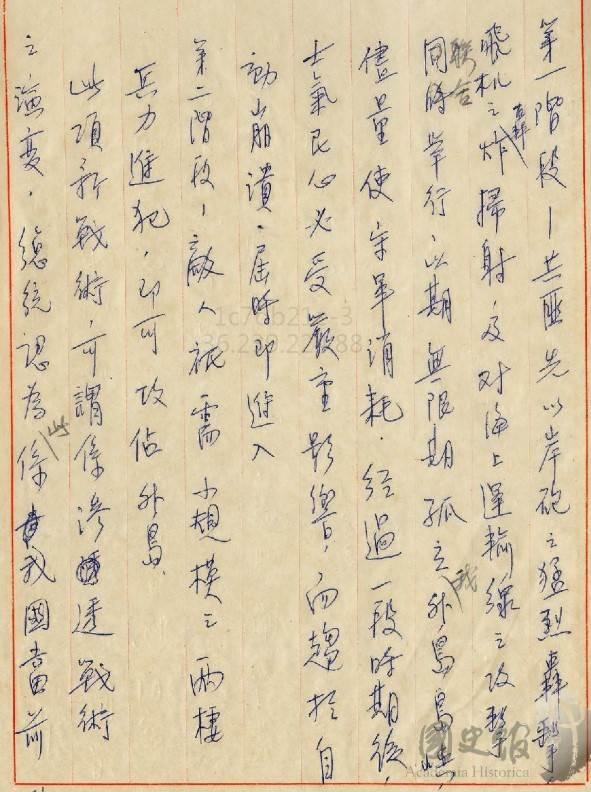 第一階段—共匪先以岸砲之猛烈轟擊,
飛机之轟炸掃射,及對海上運輸線之攻擊
聯合同時舉行,以期無限期孤立我外島,
儘量使守軍消耗.經過一段時期後,
士氣民心必受嚴重影響,而趨於自
動崩潰.屆時即進入
第二階段,敵人祇需小規模之兩棲
兵力進犯,即可攻佔外島.
此項新戰術,可謂係滲透戰術
之演變.總統認為此係我國當前
國史館
Academia Historica